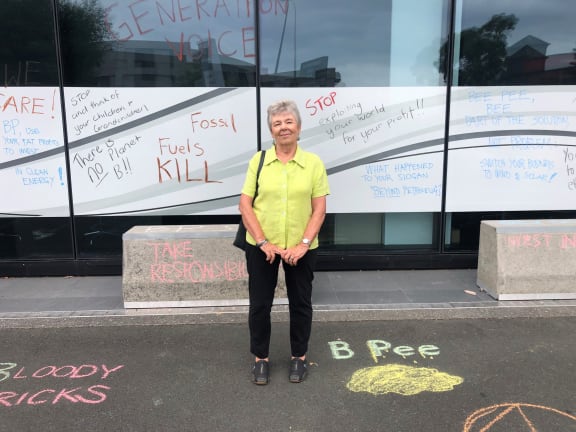 GENERATION
VOICE
WE
CARE!
BP, USE
YOUR FAT PROFITS
TO INVEST
IN CLEAN
ENERGY!
STOP
and think of
your children &
Grandchildren!
There is
NO Planet
B!!
Fossil
Fuels
KILL
STOP
exploiting
your world
for your profit!!
WHAT HAPPENED
TO YOUR SLOGAN
"BEYOND PETROLEUM"
BEE PEE,
BEE
PART OF THE SOLUTION
NOT PROBLEM
SWITCH YOUR BUSINESS
TO WIND & SOLAR!
TAKE
RESPONSIB
BLOODY
RICKS
B Pee